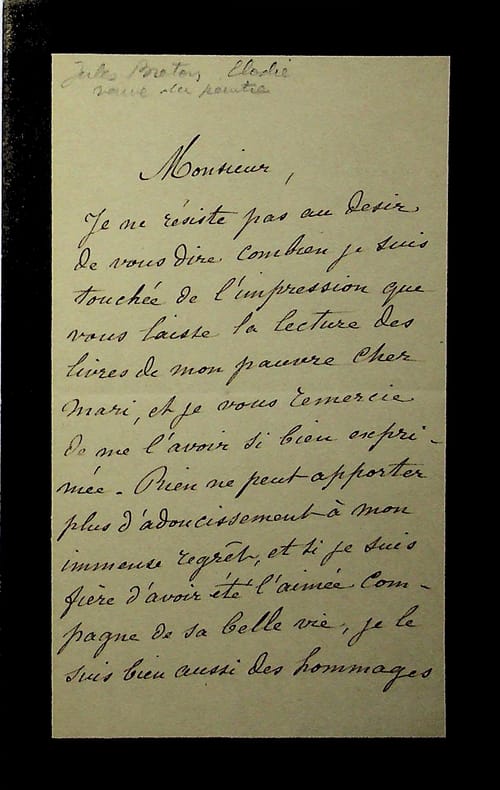 Jules Breton, Elodie
veuve du peintre
Monsieur,
Je ne résiste pas au desir
de vous dire combien je suis
touchée de l'impression que
vous laisse la lecture des
livres de mon pauvre cher
mari, et je vous remercie
de me l'avoir si bien expri-
mée. Rien ne peut apporter
plus d'adoucissement à mon
immense regrêt, et si je suis
fière d'avoir été l'aimée com-
pagne de sa belle vie, je le
suis bien aussi des hommages